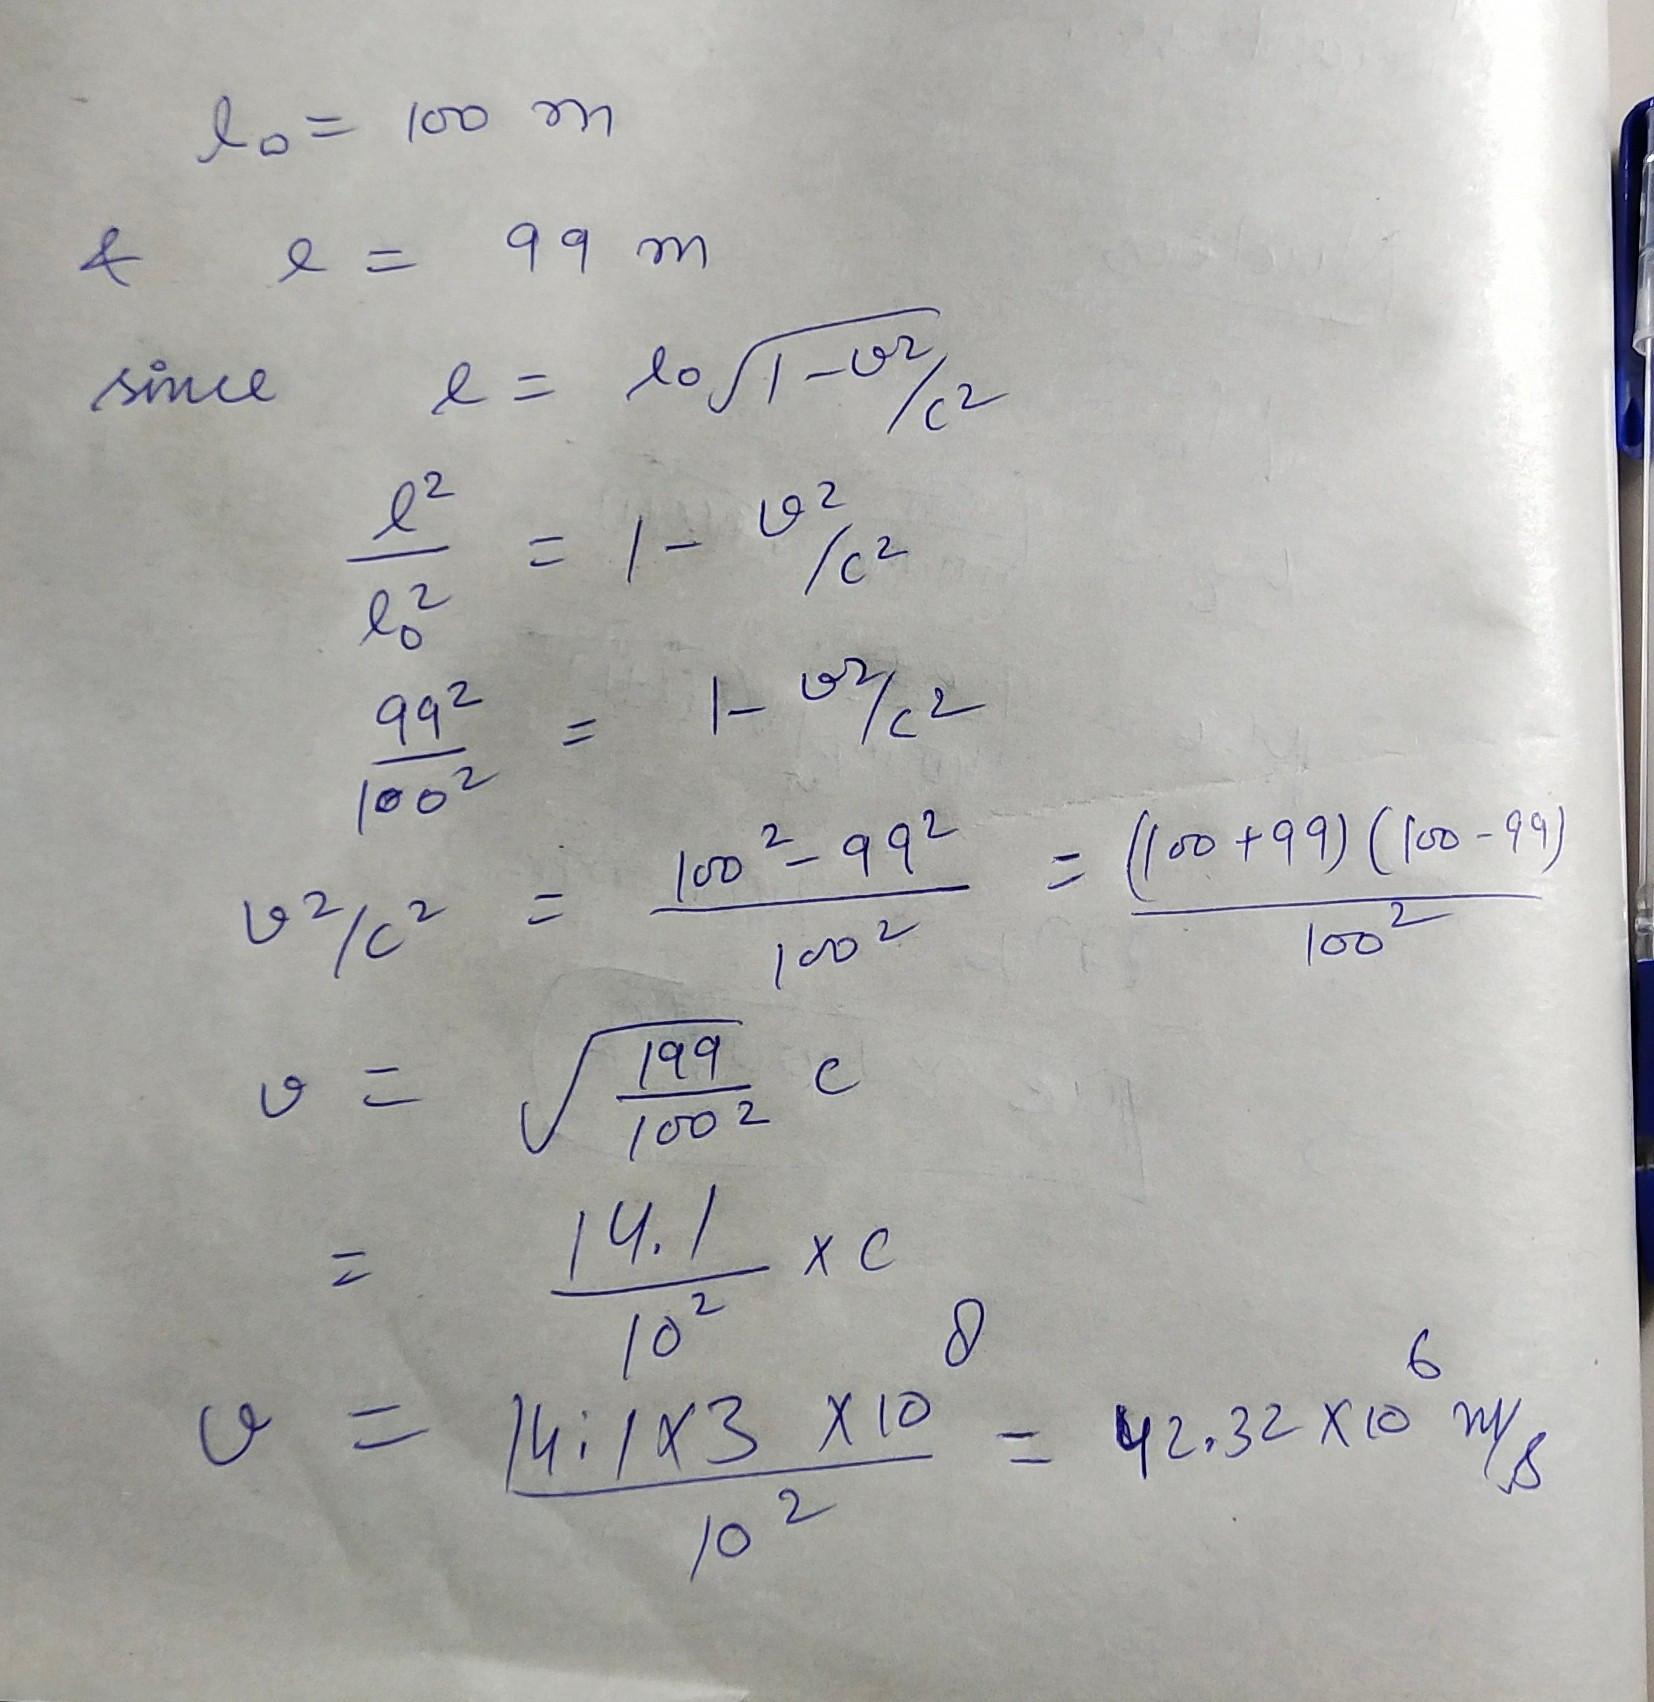 l₀ = 100 m
& l = 99 m
since l = l₀√(1-v²/c²)
l²/l₀² = 1 - v²/c²
99²/100² = 1 - v²/c²
v²/c² = (100² - 99²)/100² = (100+99)(100-99)/100²
v = √(199/100²) c
= 14.1/10² × c
v = 14.1×3 ×10⁸/10² = 42.32 × 10⁶ m/s